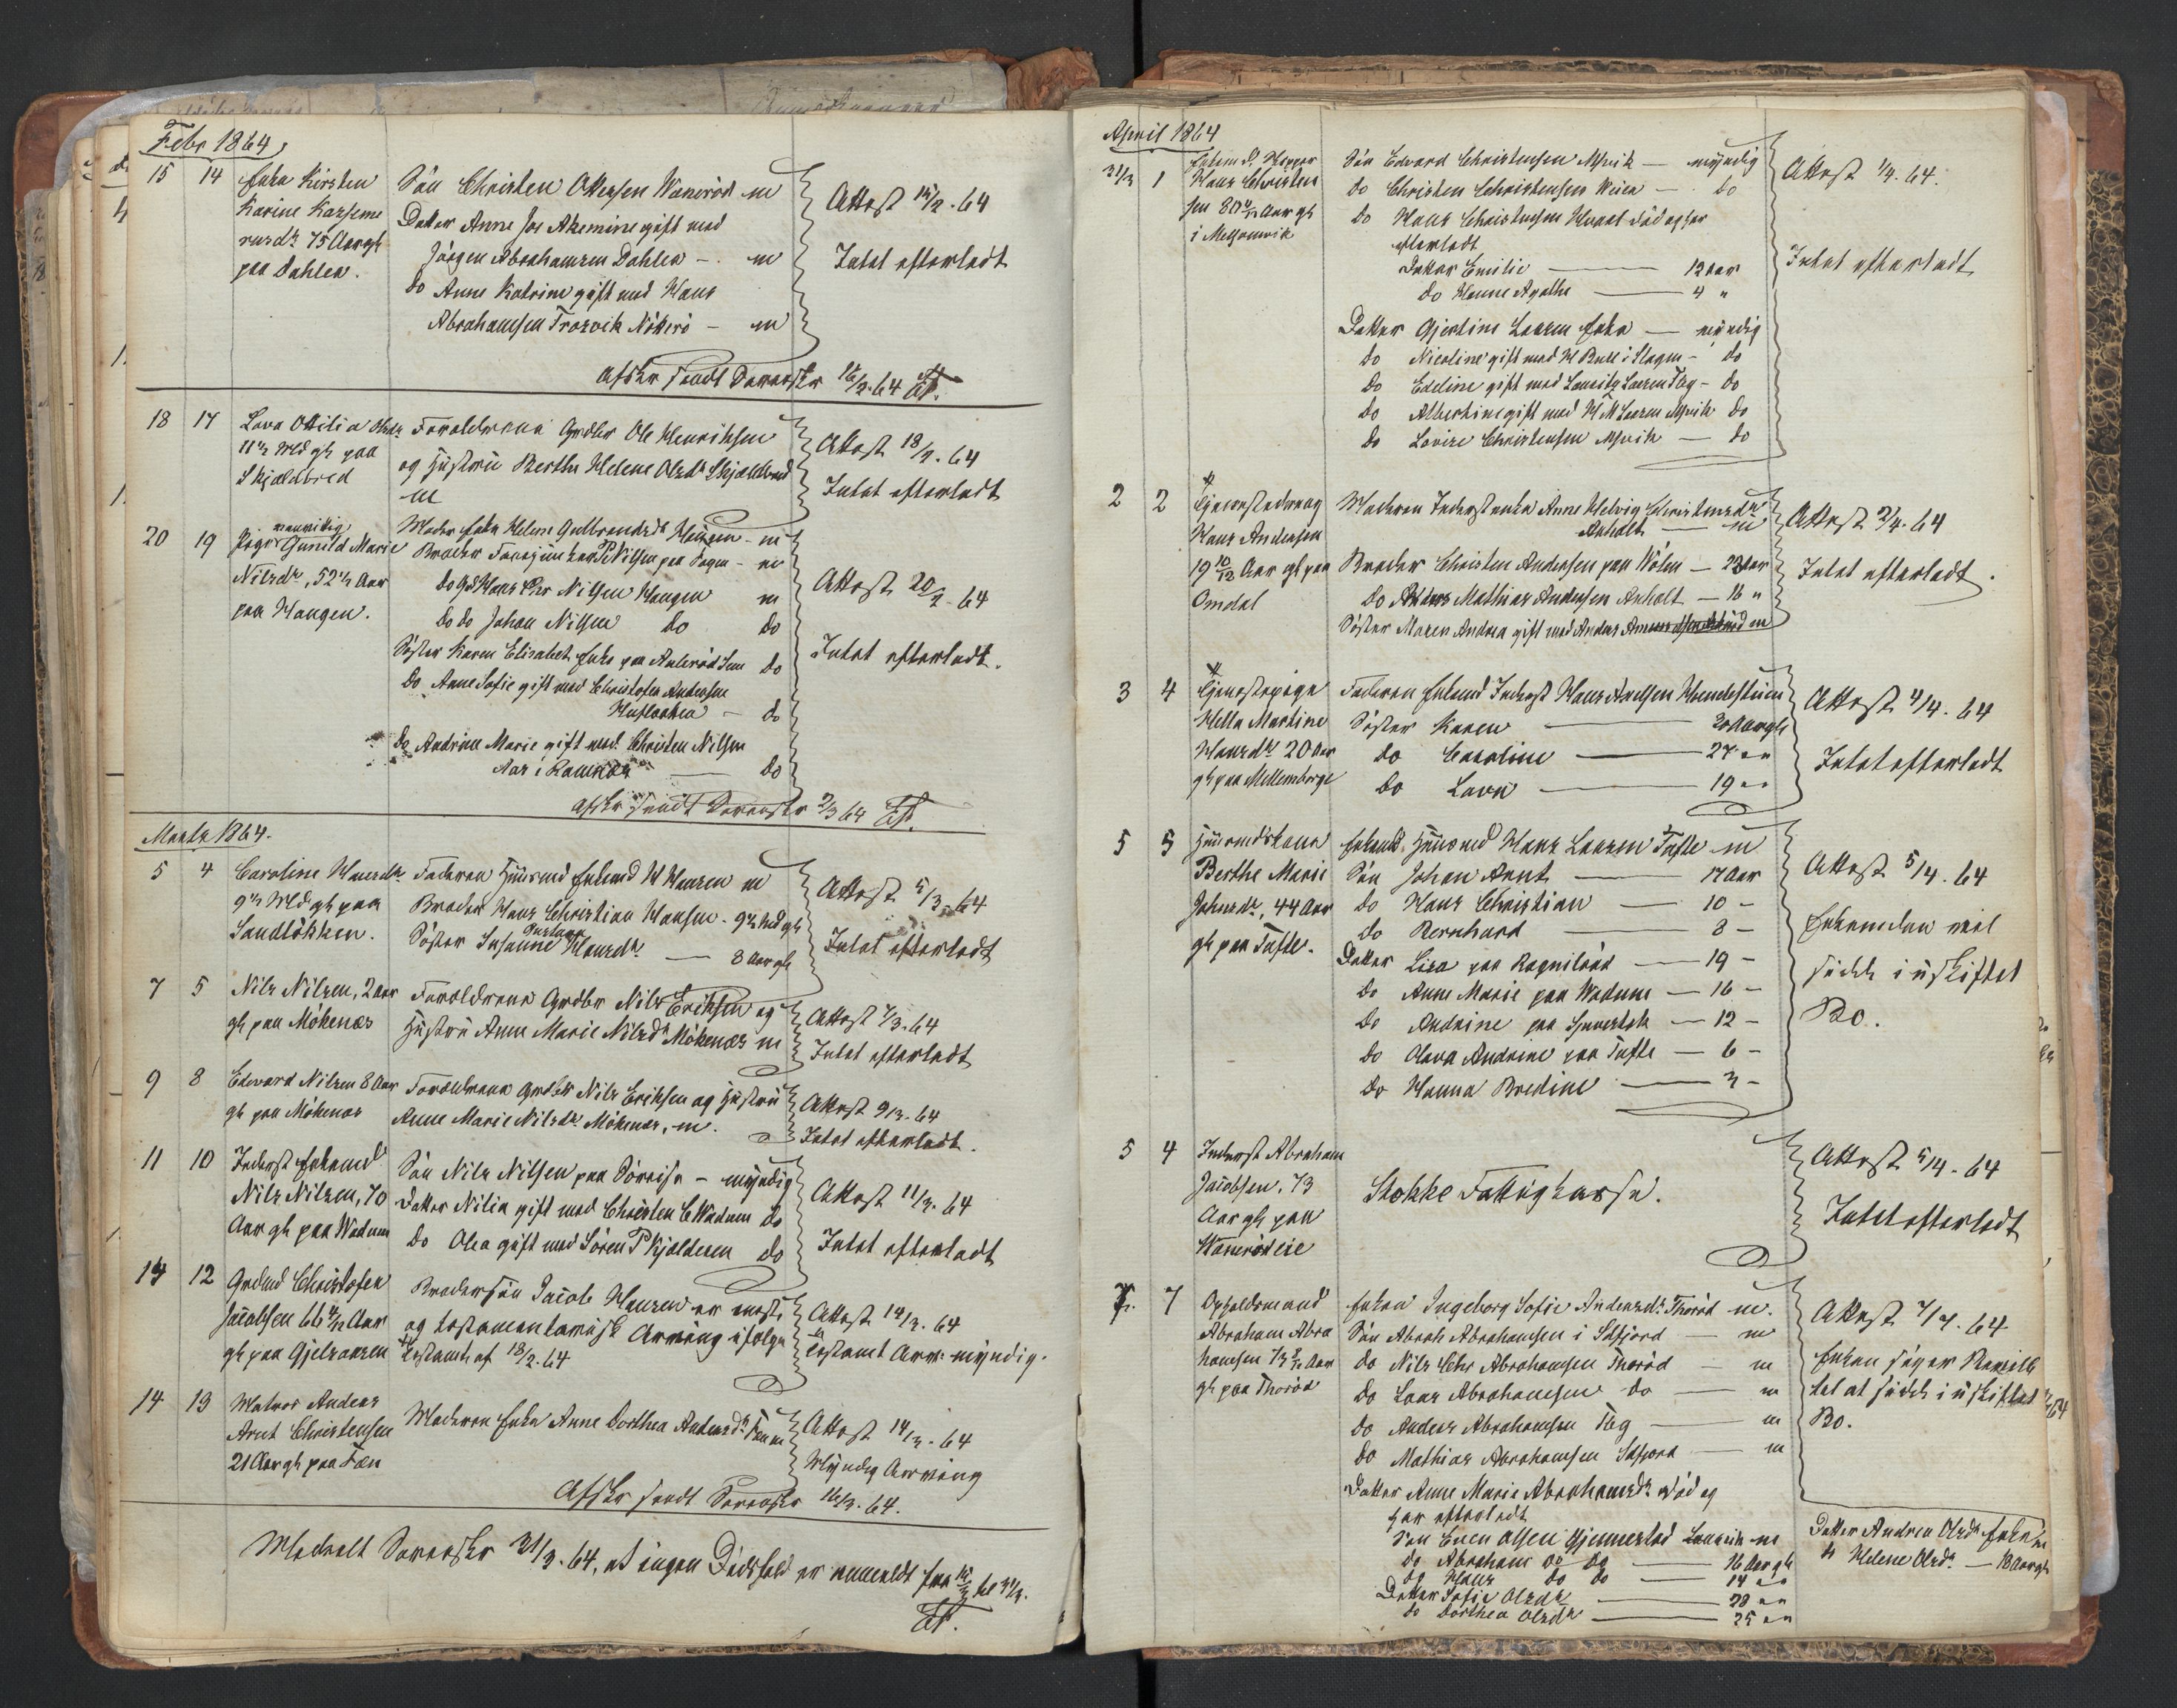 Febr 1864
15 14 Enke Kirsten
Karine
rusdr 75 Aar gl
paa Dahlen.
Sön Christen Ottersen Waneröd m
Datter Anne Joe Akemine gift med
Jörgen Abrahamsen Dahlen - m
do Anne Katrine gift med Hans
Abrahamsen Trosvik Nötterö - m
Attest 15/2. 64
Intet efterladt
Afskr sendt Sorenskr 16/2. 64
18 17 Lova Ottilia Olsdr
Mdr gl paa
Skjeldbred
Forældrene Grdbr Ole Henriksen
og Hustru Berthe Helene Olsdr Skjeldbred
m
Attest 18/2. 64
Intet efterladt
20 19 Pige vanvittig Gunild Marie
Nilsdr, 52 1/2 Aar
paa Haugen.
Moder Enke Helene Gulbrandsdr Haugen - m
Broder P Nilsen paa - m
do Hans Chr Nilsen Haugen m
do do Johan Nilsen do do
Söster Karen Elisabet Enke paa do
do Anne Sofie gift med Christofer Andersen
- do
do Andrine Marie gift med Christen Nilsen
Aas i Ramnæs - do
Attest 20/2. 64
Intet efterladt.
Afskr sendt Sorenskr 2/3 64
Marts 1864.
5 4 Caroline Hansdr
9 1/2 Mdr gl paa
Sandlökken.
Faderen Huusmd Enkemd H Hansen m
Broder Hans Christian Hansen - 9 1/2 Mdr gl
Söster Susanne Gustava Hansdr - 8 Aar gl
Attest 5/3. 64
Intet efterladt
7 5 Nils Nilsen, 2 Aar
gl paa Mökenæs
Forældrene Grdbr Nils Eriksen og
Hustru Anne Marie Nilsdr Mökenæs m
Attest 7/3. 64
Intet efterladt
9 8 Edvard Nilsen 8 Aar
gl paa Mökenæs
Forældrene Grdbr Nils Eriksen og Hustru
Anne Marie Nilsdr Mökenæs, m.
Attest 9/3. 64
Intet efterladt.
11 10 Inderst Enkemd
Nils Nilsen, 70
Aar gl paa Wadum
Sön Nils Nilsen paa Sörensö - myndig
Datter Nilia gift med Christen C Wadum do
do Olea gift med Sören P Kjolderen do
Attest 11/3. 64
Intet efterladt
14 12 Grdmd Christofer
Jacobsen 66 4/12 Aar
gl paa Gjelsaasen
Brodersön Jacob Hansen er eneste
og testamentarisk Arving ifölge
Testamt af 18/2. 64
Attest 14/3. 64
Testamt Arv. myndig.
14 13 Matros Anders
Arnt Christensen
21 Aar gl paa Fæn
Moderen Enke Anne Dorthea Andersdr Fæn m
Attest 14/3. 64
Myndig Arving
Afskr sendt Sorenskr 16/3. 64.
Meddelt Sorenskr 31/3. 64, at ingen Dödsfald er anmeldt fra 15/3 til 31/3.
April 1864
31/3 1 Enkemd Skipper
Hans Christen
sen 80 4/12 Aar gl
i Melsomvik
Sön Edvard Christensen Msvik - myndig
do Christen Christensen Veien - do
do Hans Christensen död og har
efterladt
Datter Emilie - 12 Aar
do Hanne Agathe - 4 "
Datter Gjertine Larsen Enke - myndig
do Nicoline gift med H Bull i Slagen - do
do Edeline gift med Lauritz Larsen Tbg - do
do Albertine gift med H M Larsen Msvik do
do Lovise Christensen Msvik - do
Attest 1/4. 64.
Intet efterladt
2 2 Tjenestedreng
Hans Andersen
19 10/12 Aar gl paa
Omdal
Moderen Inderst Enke Anne Helvig Christensdr
Anholt - m
Broder Christen Andersen paa Wölen - 23 Aar
do Mathias Andersen Anholt - 16 "
Söster Maren Andrea gift med Anders m
Attest 2/4. 64
Intet efterladt.
3 4 Tjenestepige
Hella Martine
Hansdr 20 Aar
gl paa Mellemborge
Faderen Enkemd Inderst Hans Axelsen m
Söster Karen - Aar gl
do Caroline - 27 " "
do Lovn - 19 " "
Attest 4/4. 64
Intet efterladt
5 5 Huusmdskone
Berthe Marie
Johnsdr, 44 Aar
gl paa Tufte.
Enkemd Huusmd Hans Larsen Tufte m
Sön Johan Arnt - 17 Aar
do Hans Christian - 10 -
do Bernhard - 8 -
Datter Lisa paa Ragnilröd - 19 -
do Anne Marie paa Wadum - 16 -
do Andrine paa - 12 -
do Olava Andrine paa Tufte - 6 -
do Hanna Bredine - 3 -
Attest 5/4. 64
Enkemden vil
sidde i uskiftet
Bo.
5 4 Inderst Abraham
Jacobsen, 73
Aar gl paa
Wanerödeie
Stokke Fattigkasse.
Attest 5/4. 64
Intet efterladt
7. 7 Opholdsmand
Abraham Abra
hamsen 73 Aar
gl paa Thoröd
Enken Ingeborg Sofie Andersdr Thoröd m.
Sön Abrah Abrahamsen i Sdfjord - m
do Nils Chr Abrahamsen Thoröd - m
do Lars Abrahamsen do - m
do Anders Abrahamsen Tbg - m
do Mathias Abrahamsen Sdfjord - m
Datter Anne Marie Abrahamsdr död og
har efterladt
Sön Even Olsen Gjennestad Laurvik m
do Abraham do do - 16 Aar gl
do Hans do do - 14 " "
Datter Sofie Olsdr - 28 " "
do Dorthea Olsdr - 25 " "
Attest 7/4. 64
Enken söger Bevill
til at sidde i uskiftet
Bo.
Datter Andrea Olsdr Enke m
do Helene Olsdr - 18 Aar gl